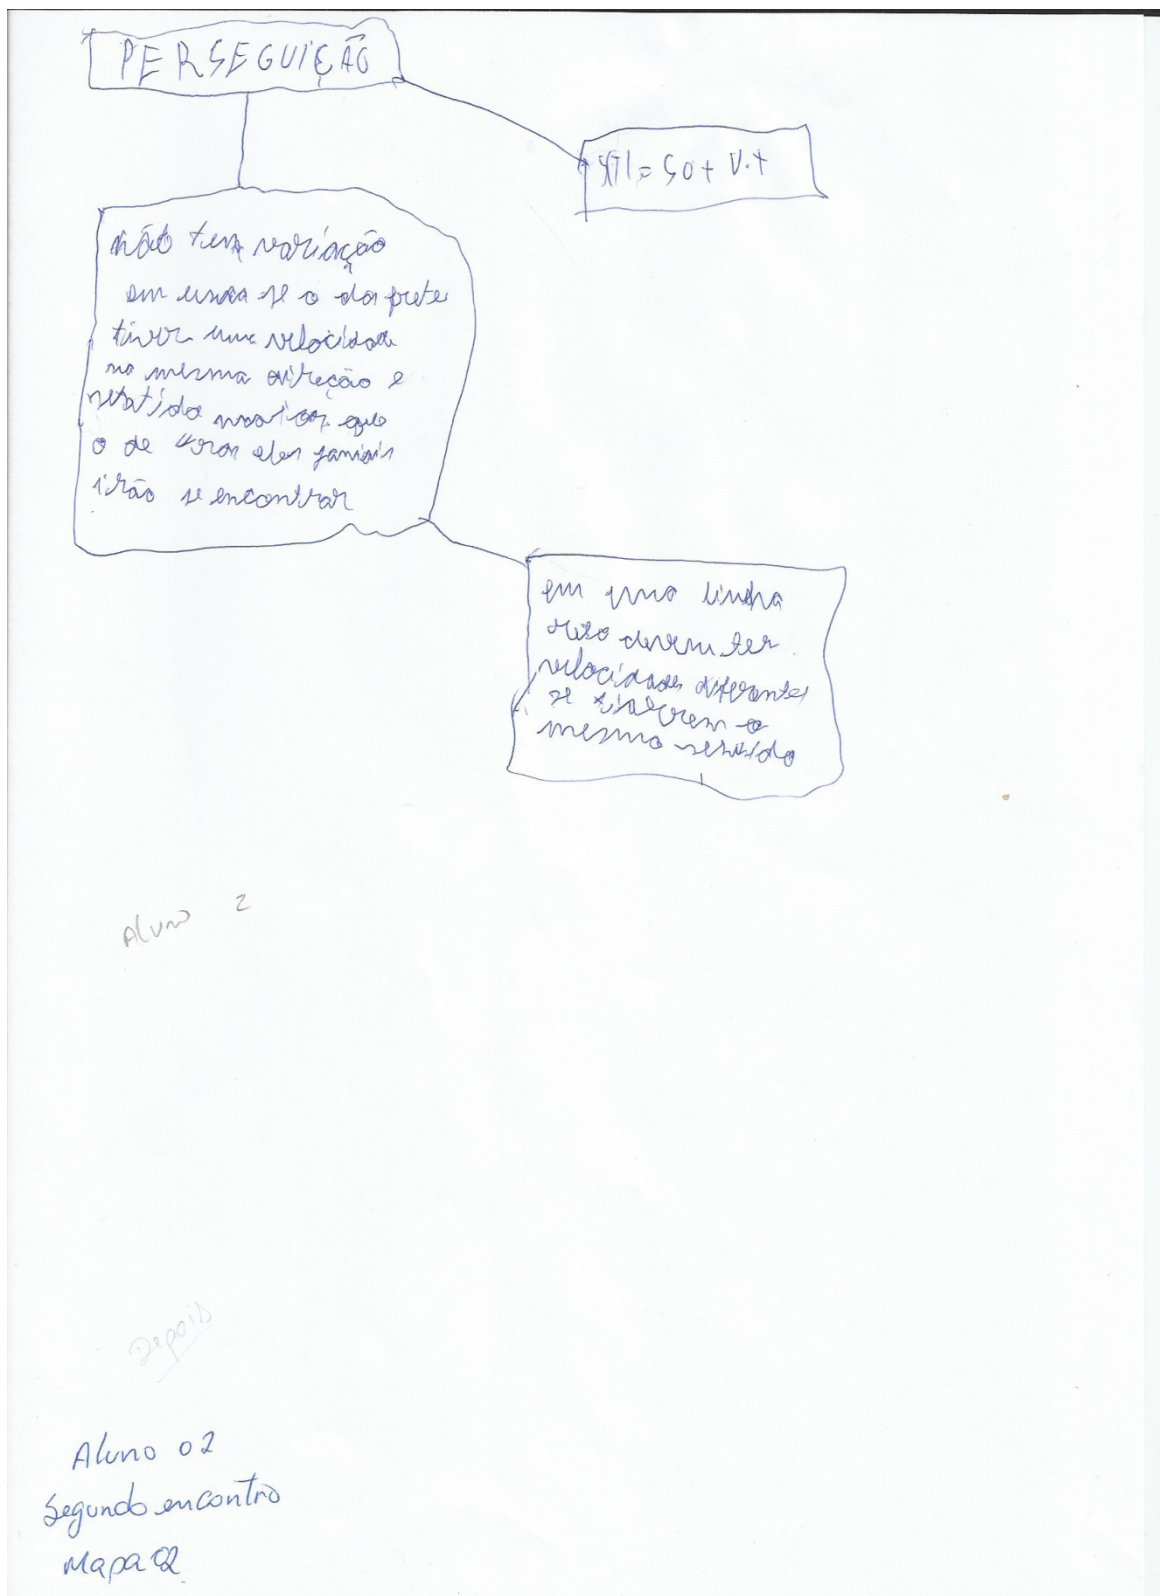 PERSEGUIÇÃO
S(T) = S0 + V.t
não tem variação
em uma se o da frete
tiver uma velocidade
na mesma direção e
sentido maior que
o de trás eles jamais
irão se encontrar
em uma linha
reta devem ter
velocidades diferentes
se tiverem o
mesmo sentido
Aluno 2
Depois
Aluno 02
Segundo encontro
Mapa 02